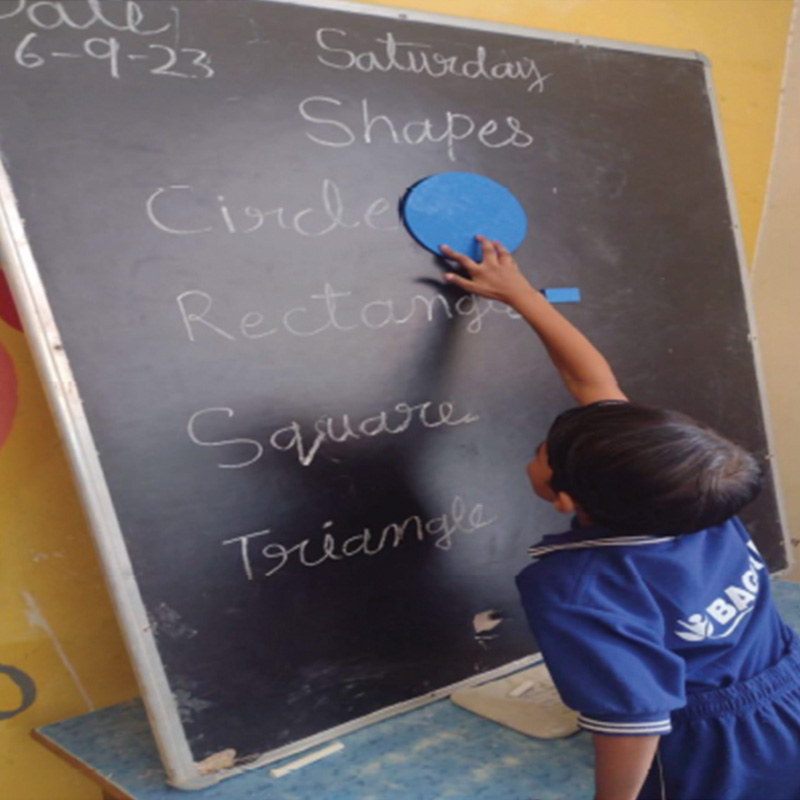 Date
6-9-23
Saturday
Shapes
Circle
Rectangle
Square
Triangle